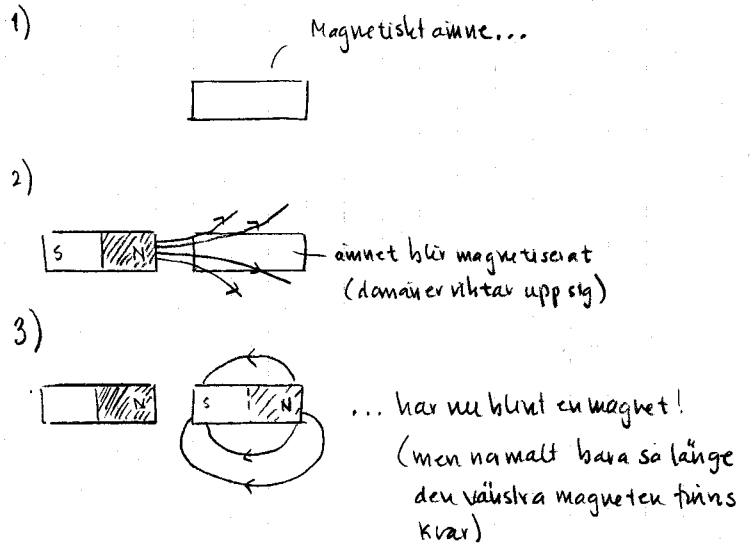 1)
Magnetiskt ämne...
2)
S N
ämnet blir magnetiserat
(domäner riktar upp sig)
3)
N S N
... har nu blivit en magnet!
(men normalt bara så länge
den vänstra magneten finns
kvar)